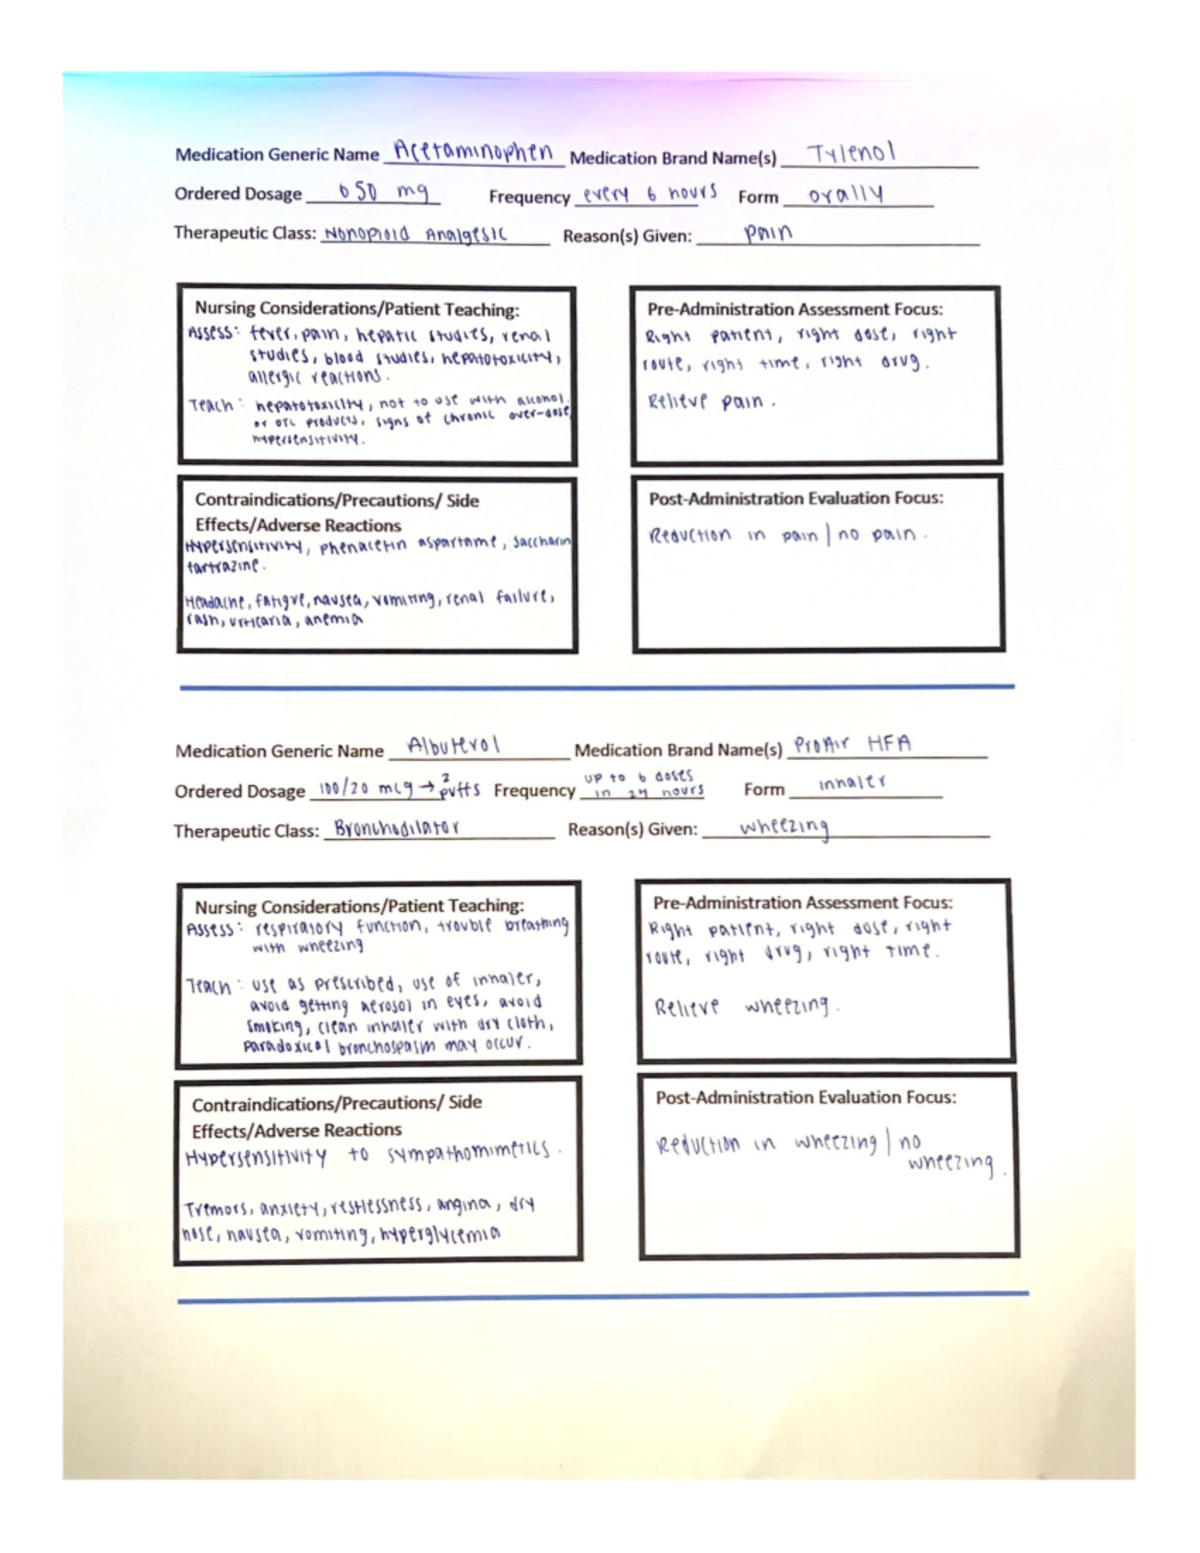 Medication Generic Name Acetaminophen Medication Brand Name(s) Tylenol
Ordered Dosage 650 mg Frequency every 6 hours Form orally
Therapeutic Class: Nonopioid Analgesic Reason(s) Given: pain
Nursing Considerations/Patient Teaching:
Assess: fever, pain, hepatic studies, renal
studies, blood studies, hepatotoxicity,
allergic reactions.
Teach: hepatotoxicity, not to use with alcohol
or otc products, signs of chronic over-dose,
hypersensitivity.
Pre-Administration Assessment Focus:
Right patient, right dose, right
route, right time, right drug.
Relieve pain.
Contraindications/Precautions/ Side
Effects/Adverse Reactions
Hypersensitivity, phenacetin aspartame, saccharin
tartrazine.
Headache, fatigue, nausea, vomiting, renal failure,
rash, urticaria, anemia
Post-Administration Evaluation Focus:
Reduction in pain | no pain.
Medication Generic Name Albuterol Medication Brand Name(s) ProAir HFA
Ordered Dosage 100/20 mcg → 2 puffs Frequency up to 6 doses in 24 hours Form inhaler
Therapeutic Class: Bronchodilator Reason(s) Given: wheezing
Nursing Considerations/Patient Teaching:
Assess: respiratory function, trouble breathing
with wheezing
Teach: use as prescribed, use of inhaler,
avoid getting aerosol in eyes, avoid
smoking, clean inhaler with dry cloth,
paradoxical bronchospasm may occur.
Pre-Administration Assessment Focus:
Right patient, right dose, right
route, right drug, right time.
Relieve wheezing.
Contraindications/Precautions/ Side
Effects/Adverse Reactions
Hypersensitivity to sympathomimetics.
Tremors, anxiety, restlessness, angina, dry
nose, nausea, vomiting, hyperglycemia
Post-Administration Evaluation Focus:
Reduction in wheezing | no
wheezing.